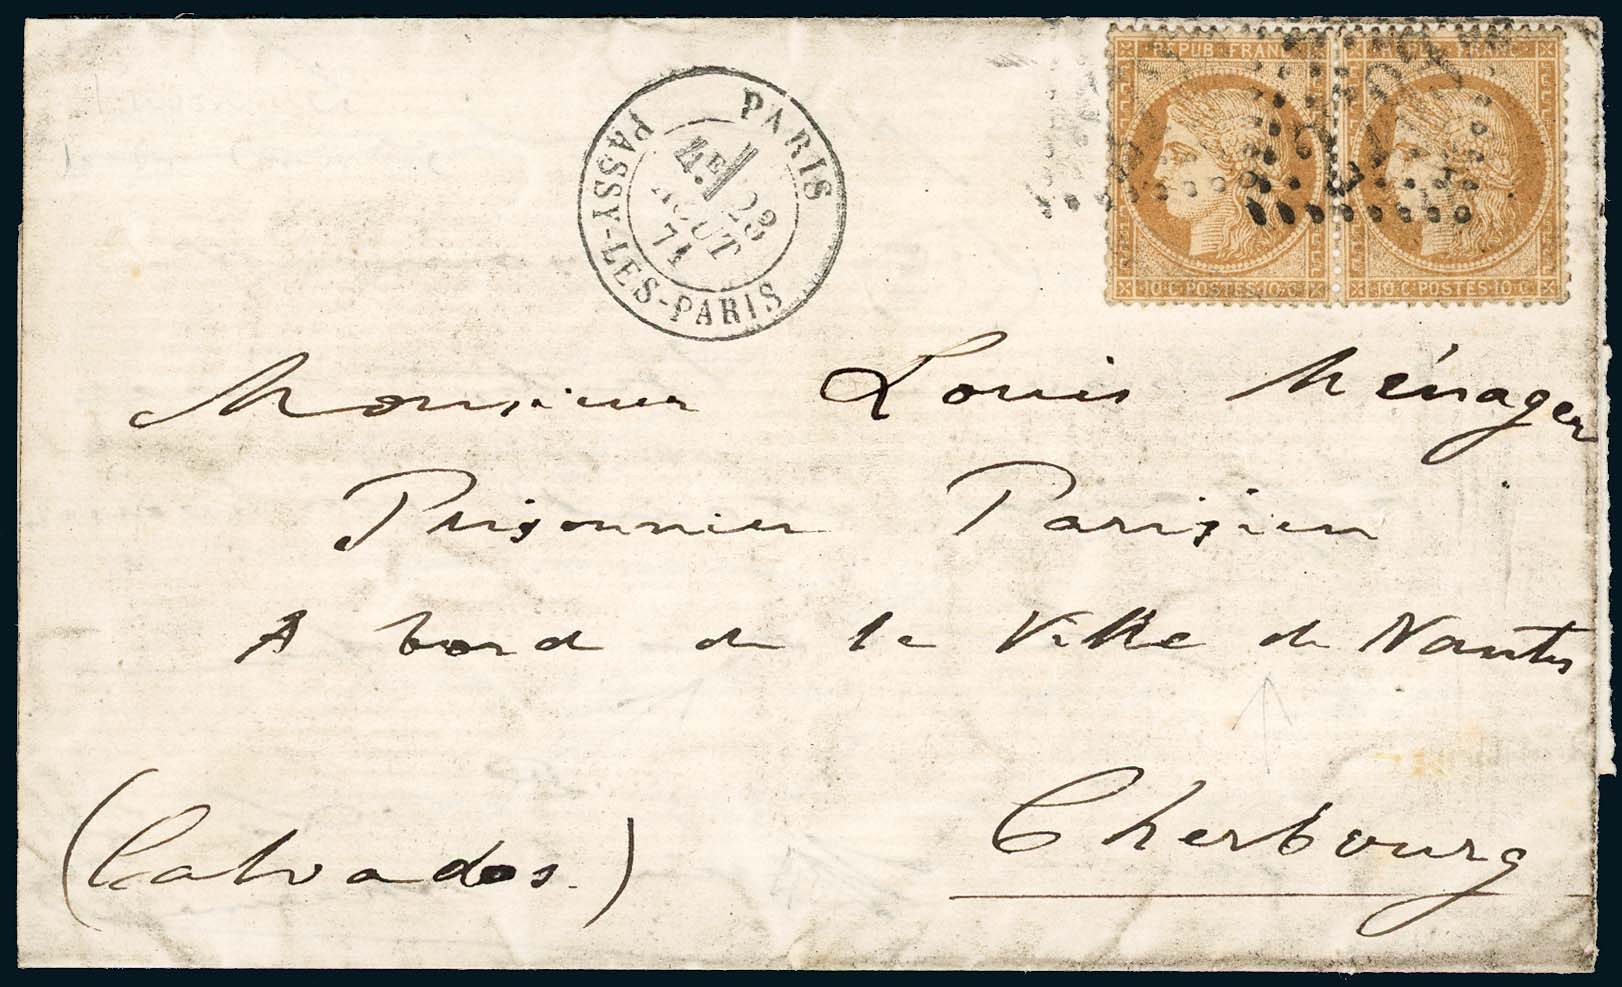 PARIS
PASSY-LES-PARIS
4E
23
AOUT
71
REPUB FRANC
10 C POSTES 10 C
REPUB FRANC
10 C POSTES 10 C
Monsieur Louis Ménager
Prisonnier Parisien
A bord de la Ville de Nantes
Cherbourg
(Calvados.)